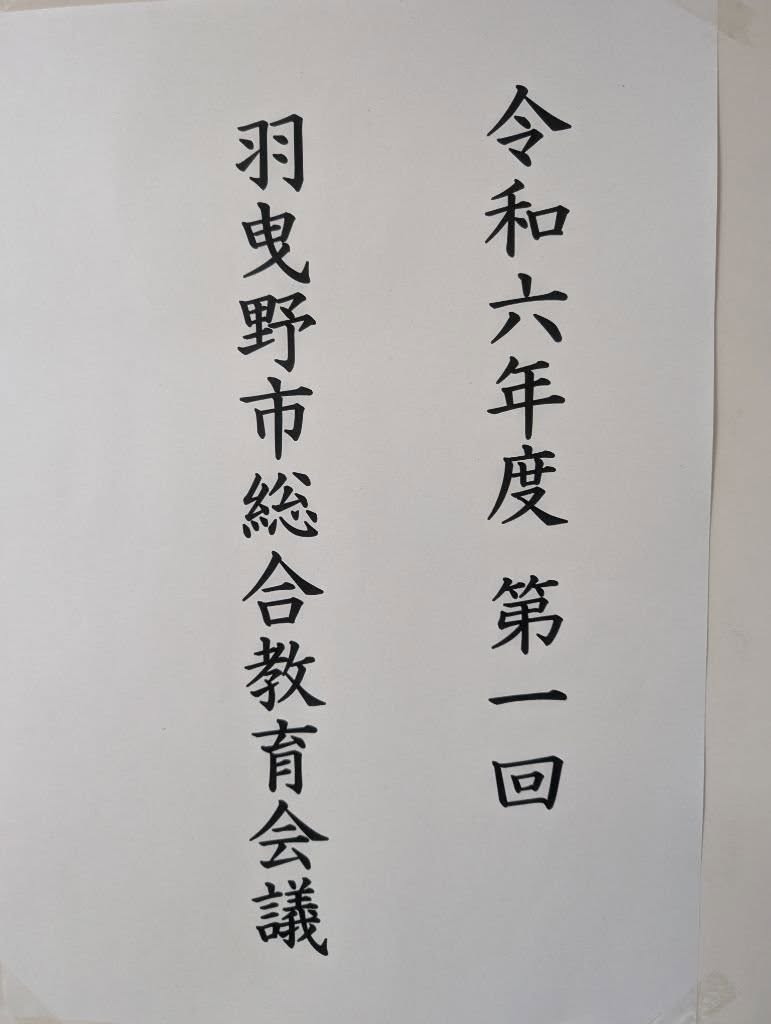 令和六年度 第一回
羽曳野市総合教育会議